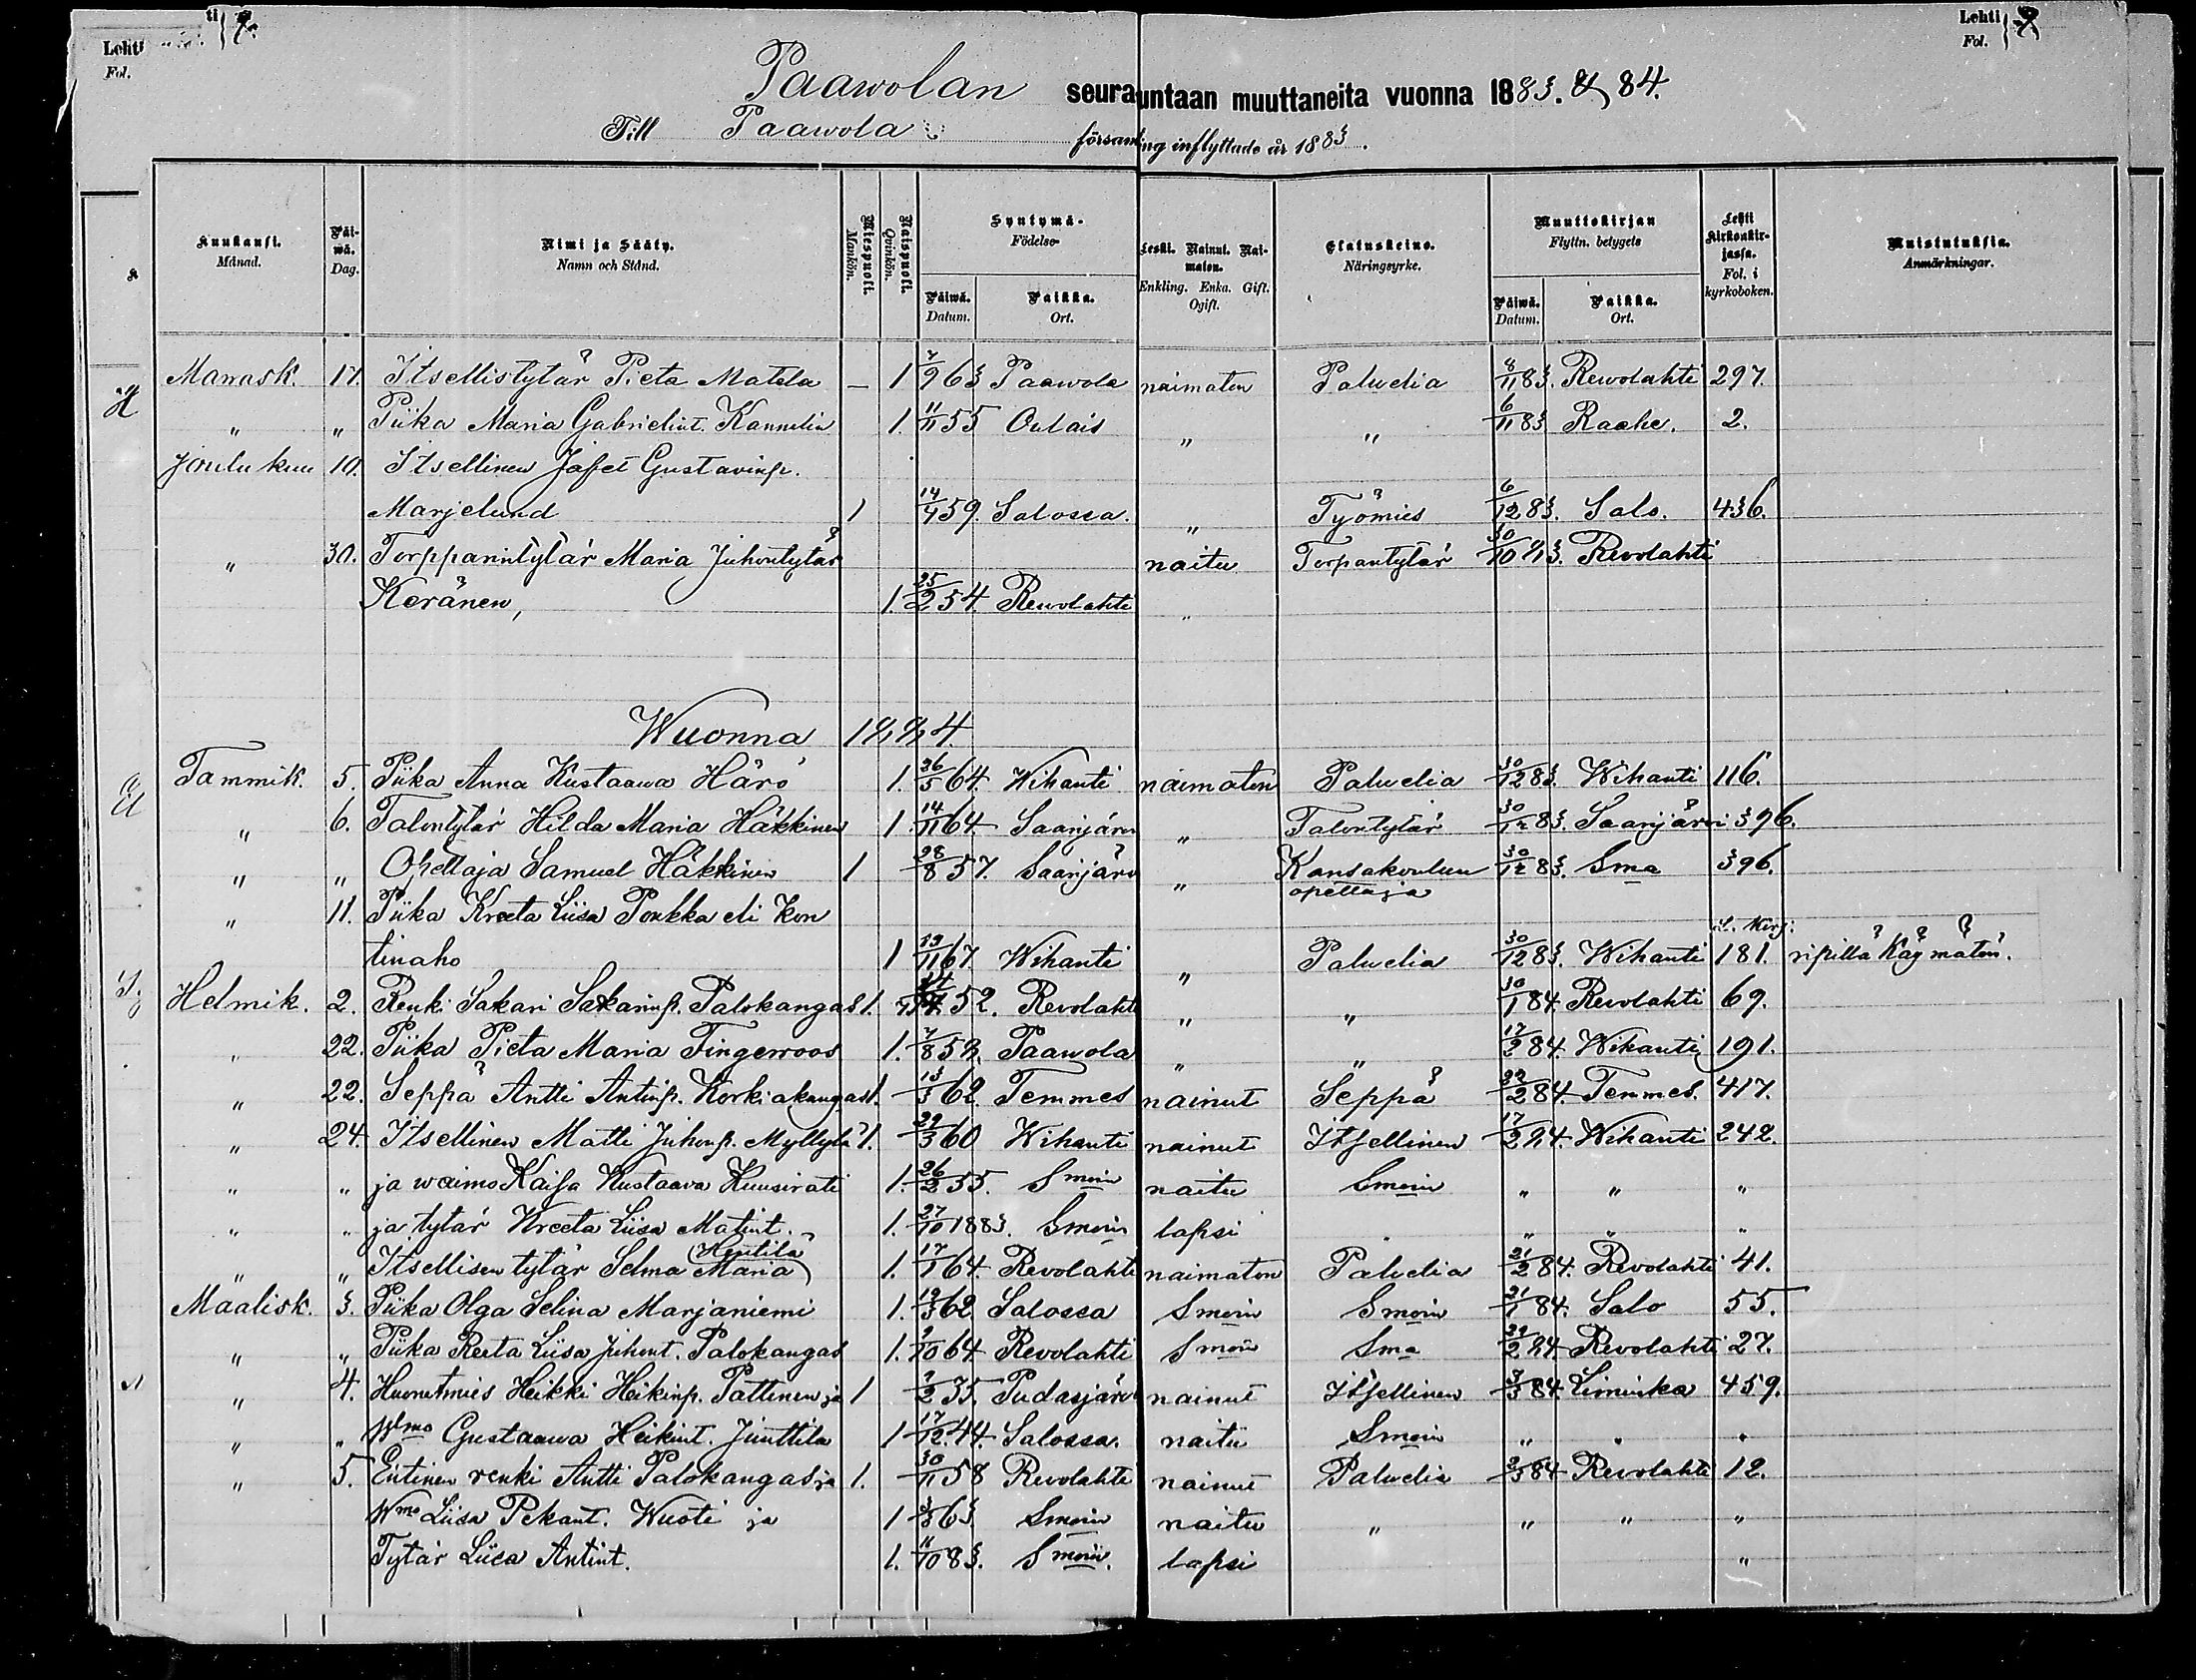 Lehti Fol. 7.
Lehti Fol.
Paawolan seurauntaan muuttaneita vuonna 1883. & 84.
Till Paawola församling inflyttade år 1883.
Kuukausi. Månad.
Päiwä. Dag.
Nimi ja Sääty. Namn och Stånd.
Miespuoli. Mankön.
Naispuoli. Qvinkön.
Syntymä- Födelse-
Päiwä. Datum.
Paikka. Ort.
Leski. Nainut. Naimaton. Enkling. Enka. Gift. Ogift.
Elatuskeino. Näringsyrke.
Muuttokirjan Flyttn. betygets
Päiwä. Datum.
Paikka. Ort.
Lehti kirkonkirjassa. Fol. i kyrkoboken.
Muistutuksia. Anmärkningar.
Marrask. 17. Itsellistytär Pieta Matila — 1 7/9 63 Paawola naimaton Palvelia 8/11 83. Rewolahti 297.
" " Piika Maria Gabrielint. Kannelin 1. 11/11 55 Oulais " " 6/11 83 Raahe. 2.
Joulukuu 10. Itsellinen Jafet Gustavinp.
Marjelund 1 14/4 59. Salossa. " Työmies 6/12 83. Salo. 436.
" 30. Torpparintytär Maria Juhontytär naitu Torpantytär 30/10 83. Revolahti
Keränen, 1 25/2 54. Rewolahti "
Wuonna 1884.
Tammik. 5. Piika Anna Kustaawa Härö 1. 26/5 64. Wihanti naimaton Palvelia 30/12 83. Wihanti 116.
" 6. Talontytär Hilda Maria Häkkinen 1. 14/11 64 Saarijärvi " Talontytär 30/12 83. Saarijärvi 396.
" " Opettaja Samuel Häkkinen 1 28/8 57. Saarijärvi " Kansakoulun opettaja 30/12 83. Sma 396.
" 11. Piika Kreeta Liisa Poukka eli Kon
tinaho 1 19/11 67. Wihanti " Palvelia 30/12 83. Wihanti L. Kirj. 181. ripillä käymätön.
Helmik. 2. Renki Sakari Sakarinp. Palokangas 1. 52. Revolahti " " 30/1 84. Rewolahti 69.
" 22. Piika Pieta Maria Fingerroos 1. 7/8 Paawola " " 17/2 84. Wihanti 191.
" 22. Seppä Antti Antinp. Korkiakangas 1. 13/3 62. Temmes nainut Seppä 22/2 84. Temmes. 417.
" 24. Itsellinen Matti Juhonp. Myllylä 1. 29/3 60 Wihanti nainut Itsellinen 17/2 84. Wihanti 242.
" " ja waimo Kaisa Kustaava Kuusirati 1. 26/2 55. Smoin naitu Smoin " " "
" " ja tytär Kreeta Liisa Matint. 1. 27/10 1883. Smoin lapsi " " "
" " Itsellisen tytär Selma Maria Hentilä 1. 17/1 64. Revolahti naimaton Palvelia 21/2 84. Revolahti 41.
Maalisk. 3. Piika Olga Selina Marjaniemi 1. 12/3 62. Salossa Smoin Smoin 21/1 84. Salo 55.
" " Piika Reeta Liisa Juhont. Palokangas 1. 9/10 64 Revolahti Smoin Sma 29/2 84. Revolahti 27.
" 4. Huonetmies Heikki Heikinp. Pattinen ja 1 2/2 35. Pudasjärvi nainut Itsellinen 3/3 84. Liminka 459.
" " Wmo Gustaawa Heikint. Junttila 1 17/12 44. Salossa. naitu Smoin " " "
" 5. Entinen renki Antti Palokangas ja 1. 30/11 58 Revolahti nainut Palvelia 3/3 84 Rewolahti 12.
Wmo Liisa Pekant. Wuoti ja 1 3/3 63 Smoin naitu " " " "
Tytär Liisa Antint. 1. 11/10 83. Smoin. lapsi "